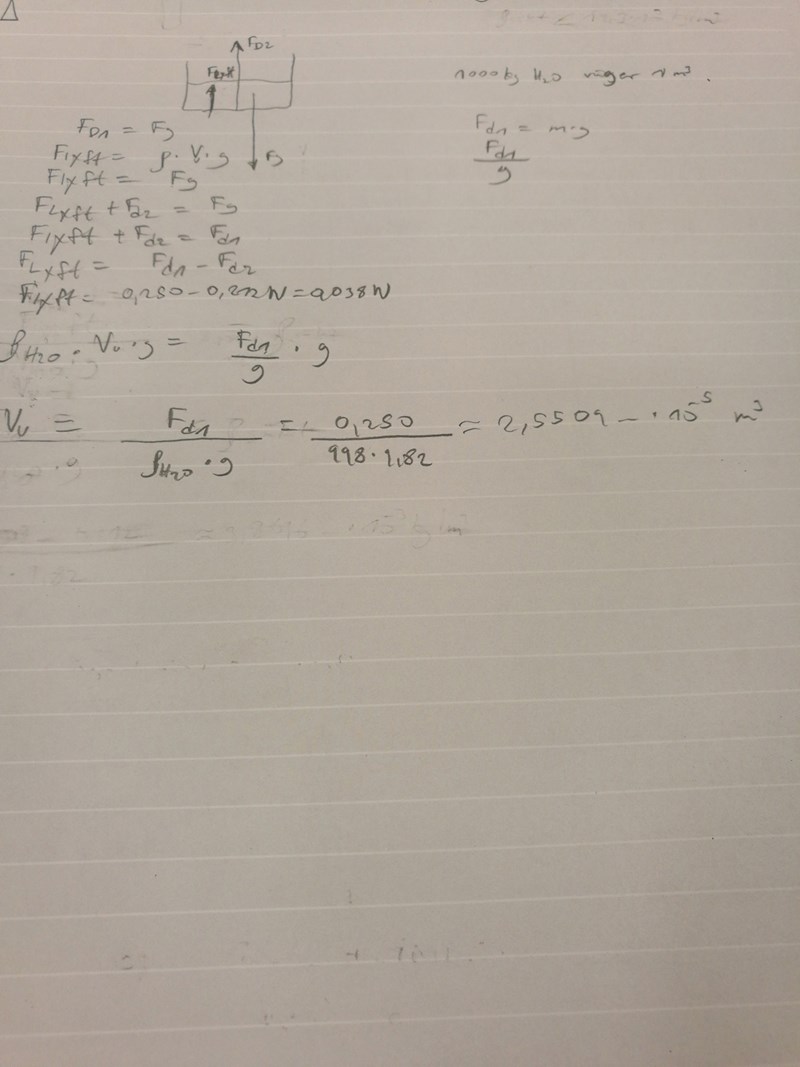 Δ
F_D2
F_lyft
F_g
1000 kg H₂O väger 1 m³.
F_D1 = F_g
F_lyft = ρ · V · g
F_lyft = F_g
F_Lyft + F_d2 = F_g
F_lyft + F_d2 = F_d1
F_Lyft = F_d1 - F_d2
F_lyft = 0,250 - 0,212 N = 0,038 N
F_d1 = m · g
F_d1 / g
ρ_H₂O · V_v · g = F_d1 / g · g
V_v = F_d1 / (ρ_H₂O · g) = 0,250 / (998 · 9,82) = 2,5509 - · 10⁻⁵ m³